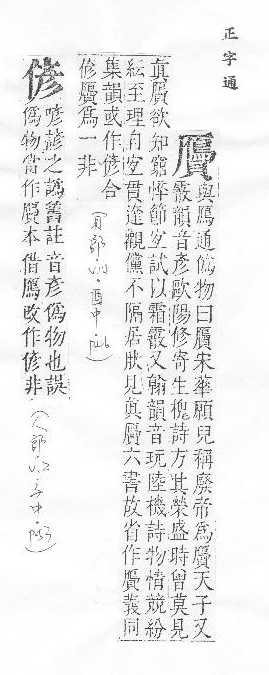 正字通
贗
與鴈通偽物曰贗宋華願兒稱廢帝為贗天子又
霰韻音彥歐陽修寄生槐詩方其榮盛時曾莫見
真贗欲知窮悴節宜試以霜霰又翰韻音玩陸機詩物情競紛
紜至理自宜貫達觀儻不隔居然見真贗六書故省作贋義同
集韻或作偐合
偐贗為一非
(貝部
酉中
偐
喭諺之譌舊註音彥偽物也誤
偽物當作贗本借鴈改作偐非
(人部
子中